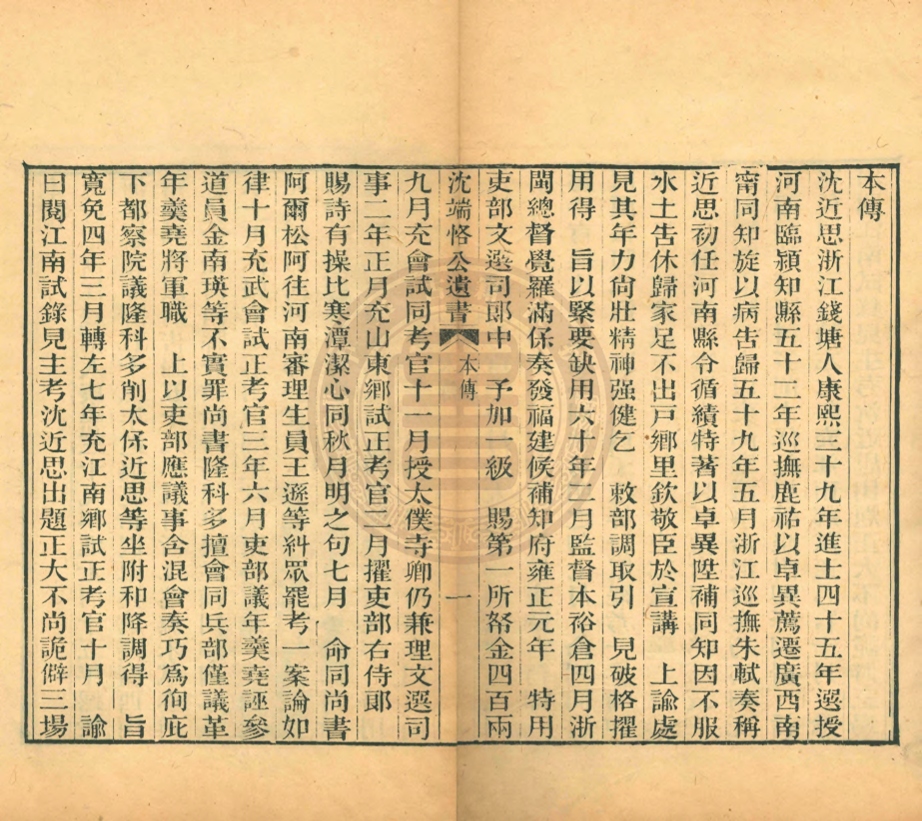 本傳
沈近思浙江錢塘人康熙三十九年進士四十五年選授
河南臨潁知縣五十二年巡撫鹿祐以卓異薦遷廣西南
甯同知旋以病告歸五十九年五月浙江巡撫朱軾奏稱
近思初任河南縣令循績特著以卓異陞補同知因不服
水土告休歸家足不出戸鄉里欽敬臣於宣講 上諭處
見其年力尙壯精神强健乞 敕部調取引 見破格擢
用得 旨以緊要缺用六十年二月監督本裕倉四月浙
閩總督覺羅滿保奏發福建候補知府雍正元年 特用
吏部文選司郎中 予加一級 賜第一所帑金四百兩
沈端恪公遺書 本傳 一
九月充會試同考官十一月授太僕寺卿仍兼理文選司
事二年正月充山東鄉試正考官二月擢吏部右侍郎
賜詩有操比寒潭潔心同秋月明之句七月 命同尙書
阿爾松阿往河南審理生員王遜等糾眾罷考一案論如
律十月充武會試正考官三年六月吏部議年羹堯誣參
道員金南瑛等不實罪尙書隆科多擅會同兵部僅議革
年羹堯將軍職 上以吏部應議事含混會奏巧爲徇庇
下都察院議隆科多削太保近思等坐附和降調得 旨
寬免四年三月轉左七年充江南鄉試正考官十月 諭
曰閱江南試錄見主考沈近思出題正大不尙詭僻三場